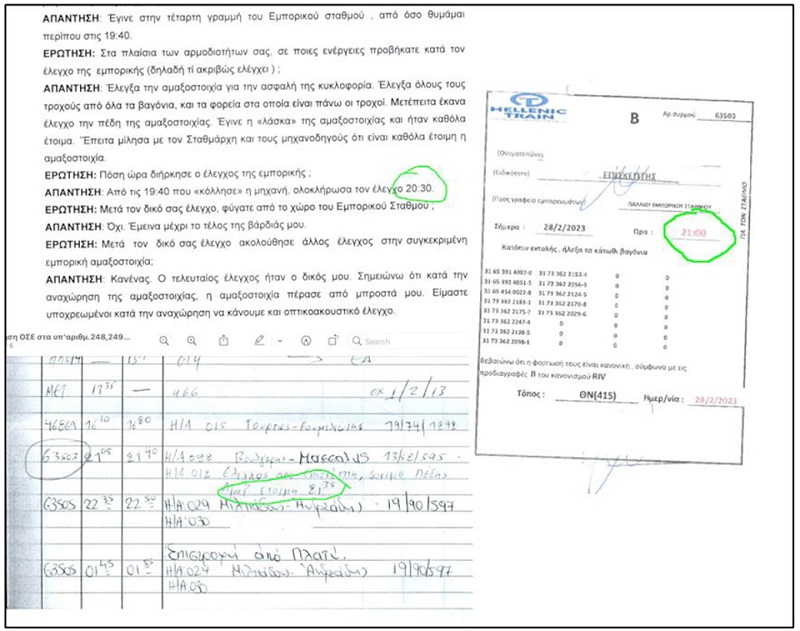 ΑΠΑΝΤΗΣΗ: Έγινε στην τέταρτη γραμμή του Εμπορικού σταθμού , από όσο θυμάμαι
περίπου στις 19:40.
ΕΡΩΤΗΣΗ: Στα πλαίσια των αρμοδιοτήτων σας, σε ποιες ενέργειες προβήκατε κατά τον
έλεγχο της εμπορικής (δηλαδή τί ακριβώς ελέγξει ) ;
ΑΠΑΝΤΗΣΗ: Έλεγξα την αμαξοστοιχία για την ασφαλή της κυκλοφορία. Έλεγξα όλους τους
τροχούς από όλα τα βαγόνια, και τα φορεία στα οποία είναι πάνω οι τροχοί. Μετέπειτα έκανα
έλεγχο την πέδη της αμαξοστοιχίας. Έγινε η «λάσκα» της αμαξοστοιχίας και ήταν καθόλα
έτοιμα. Έπειτα μίλησα με τον Σταθμάρχη και τους μηχανοδηγούς ότι είναι καθόλα έτοιμη η
αμαξοστοιχία.
ΕΡΩΤΗΣΗ: Πόση ώρα διήρκησε ο έλεγχος της εμπορικής ;
ΑΠΑΝΤΗΣΗ: Από τις 19:40 που «κόλλησε» η μηχανή, ολοκλήρωσα τον έλεγχο 20:30.
ΕΡΩΤΗΣΗ: Μετά τον δικό σας έλεγχο, φύγατε από το χώρο του Εμπορικού Σταθμού ;
ΑΠΑΝΤΗΣΗ: Όχι. Έμεινα μέχρι το τέλος της βάρδιάς μου.
ΕΡΩΤΗΣΗ: Μετά τον δικό σας έλεγχο ακολούθησε άλλος έλεγχος στην συγκεκριμένη
εμπορική αμαξοστοιχία;
ΑΠΑΝΤΗΣΗ: Κανένας. Ο τελευταίος έλεγχος ήταν ο δικός μου. Σημειώνω ότι κατά την
αναχώρηση της αμαξοστοιχίας, η αμαξοστοιχία πέρασε από μπροστά μου. Είμαστε
υποχρεωμένοι κατά την αναχώρηση να κάνουμε και οπτικοακουστικό έλεγχο.
ση ΟΣΕ στα υπ'αριθμ.248,249...
Search
014
ΜΕΤ 13 — 466 1/2/13
46869 16 10 Η/Α 015 19/74/1292
63503 21 21 40 Η/Α 028 13/68/595
Η/Α 012
έτοιμη 21 35
63505 22 22 Η/Α:029 19/90/597
Η/Α:030
Επιστροφή από Πλατύ.
63505 01 45 01 Η/Α:029 19/90/597
Η/Α:030
HELLENIC
TRAIN
Β
Αρ.συρμού 63503
(Ονοματεπώνυμο)
(Ειδικότητα) ΕΠΙΣΚΕΠΤΗΣ
(Προς γραφείο εμπορευμάτων) ΠΑΛΑΙΟΥ ΕΜΠΟΡΙΚΟΥ ΣΤΑΘΜΟΥ
Σήμερα : 28/2/2023 Ωρα : 21:00
ΓΙΑ ΤΟΝ ΣΤΑΘΜΟ
Κατόπιν εντολής , ήλεξα τα κάτωθι βαγόνια
31 65 391 4097-0 31 73 362 2153-4 0 0
31 65 394 6051-5 31 73 362 2056-9 0 0
31 65 454 0022-8 31 73 362 2124-5 0 0
31 73 362 2184-1 31 73 362 2170-8 0 0
31 73 362 2175-7 31 73 362 2029-6 0 0
31 73 362 2247-4 0 0 0
31 73 362 2138-5 0 0 0
31 73 362 2098-1 0 0 0
Βεβαιώνω ότι η φόρτωσή τους είναι κανονική , σύμφωνα με τις
προδιαγραφές Π του κανονισμού RIV
Τόπος : ΘΝ(415) Ημερ/νία : 28/2/2023